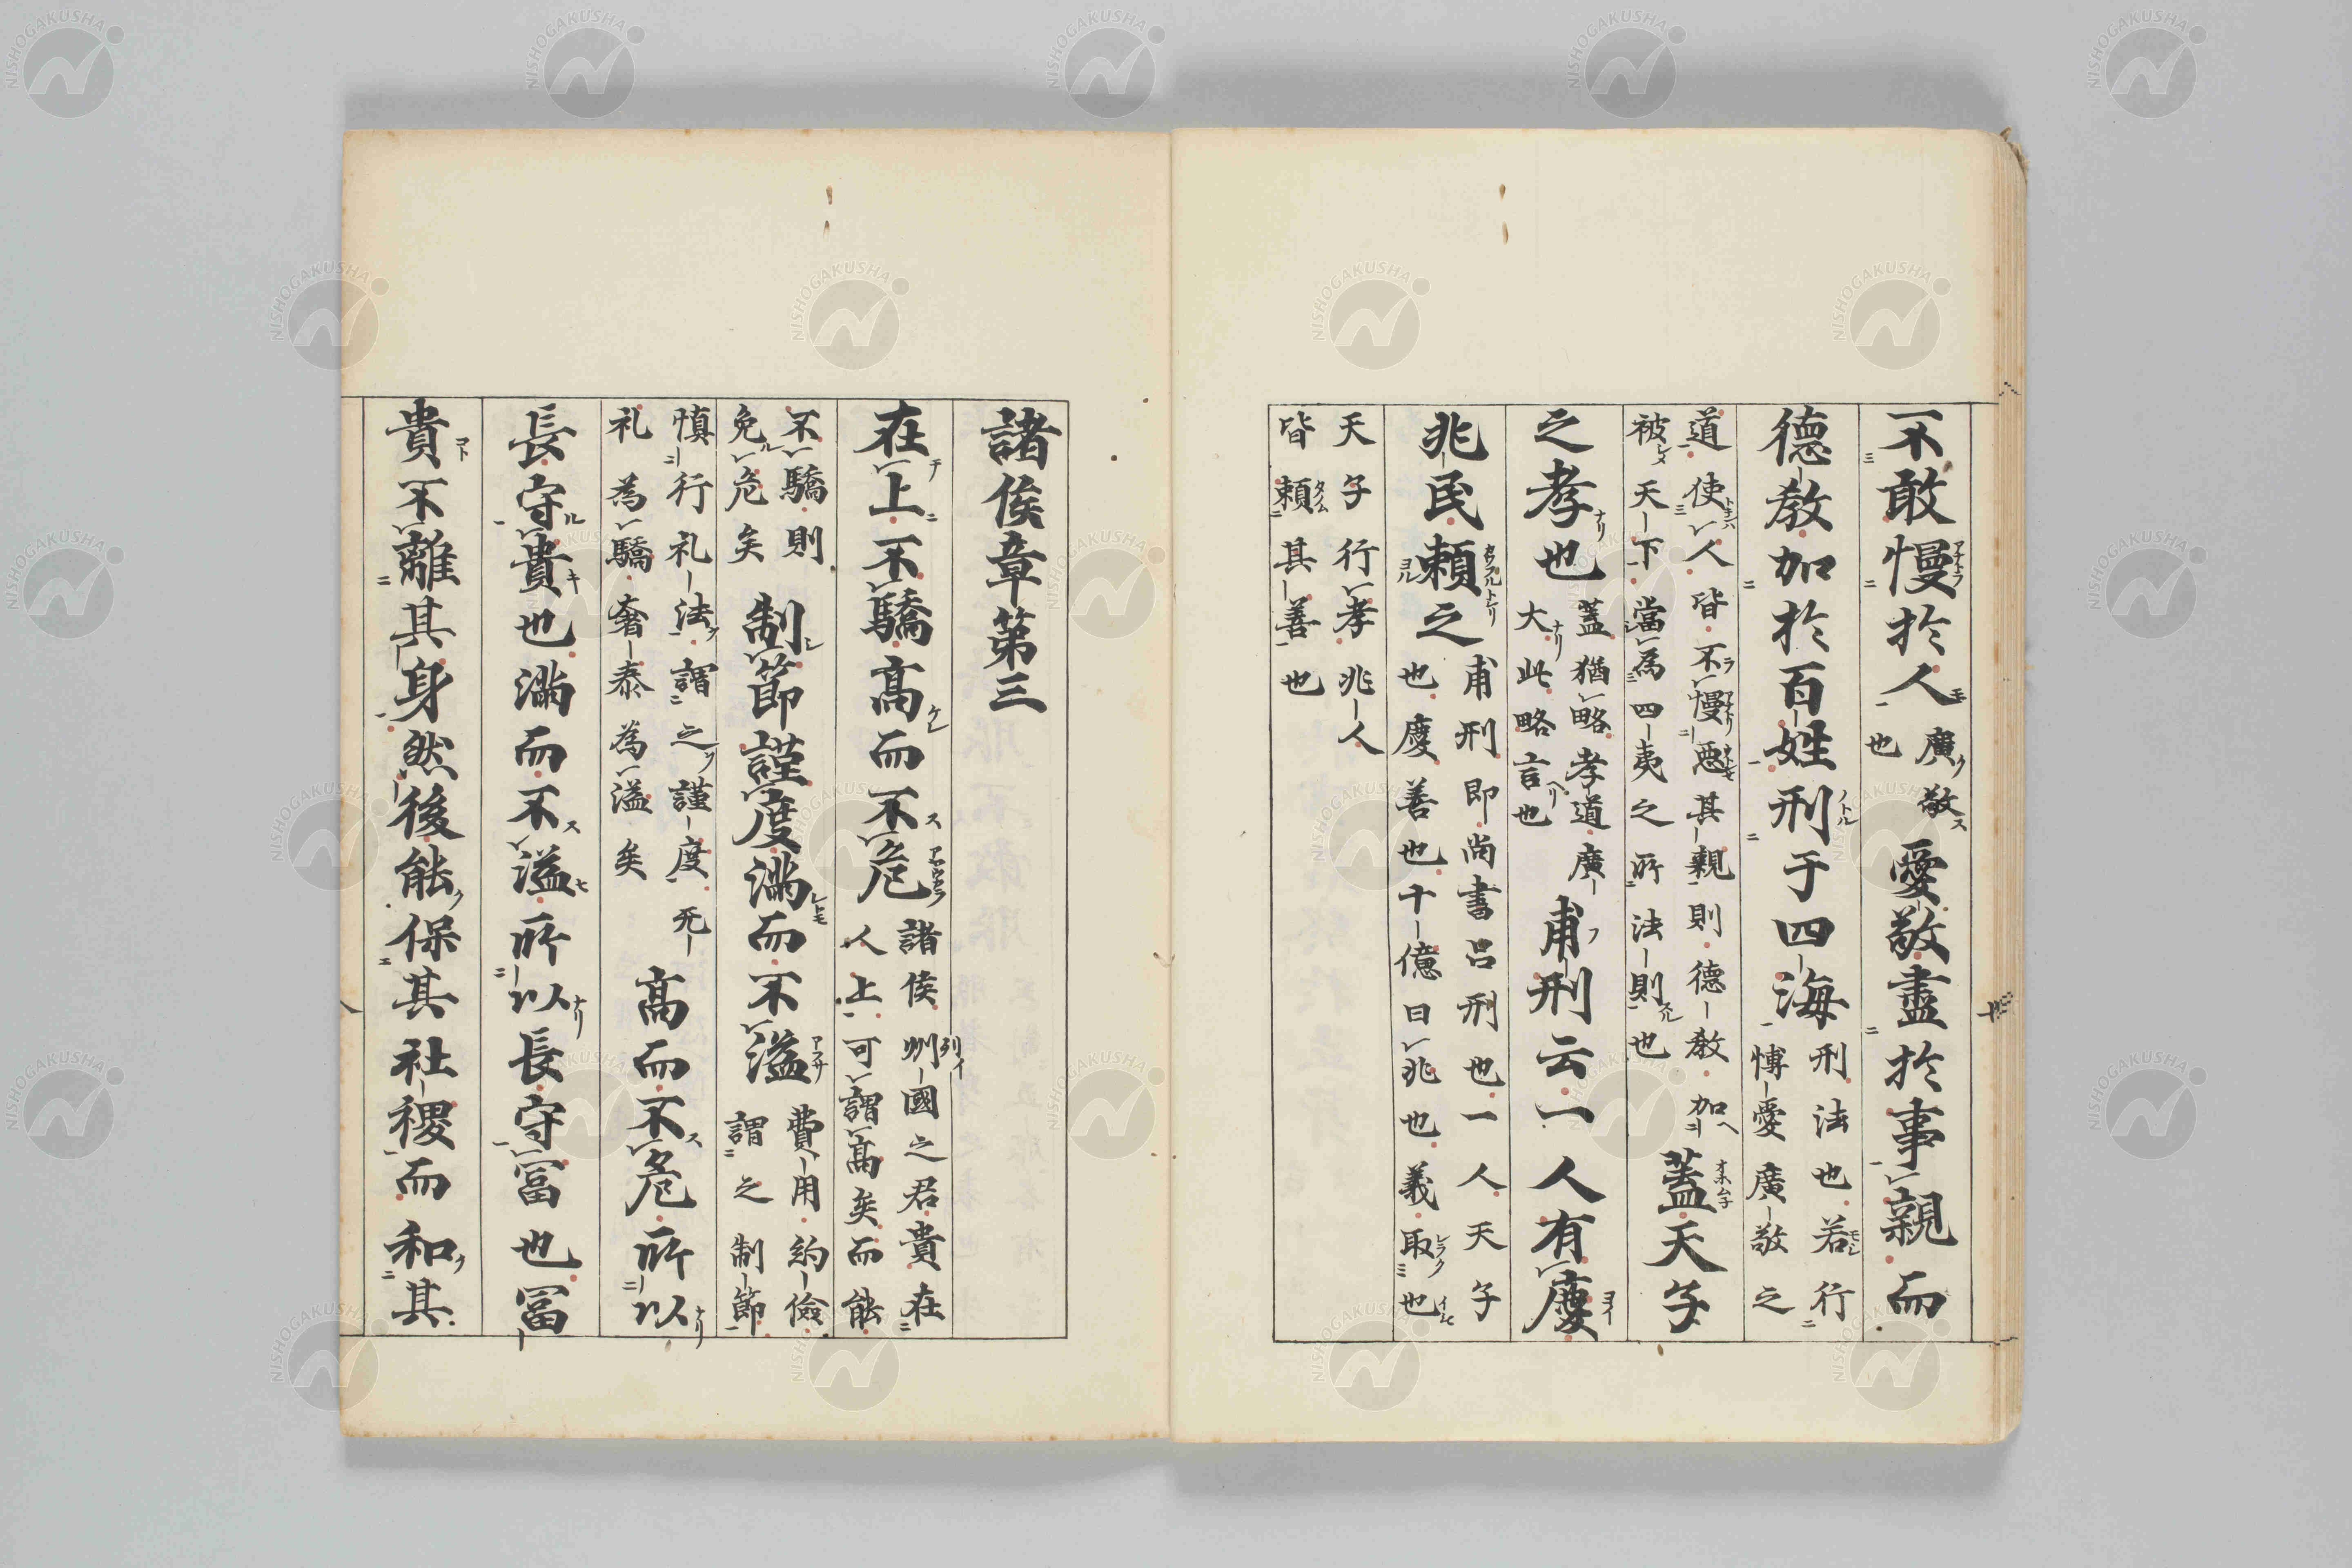 不敢慢於人廣敬也愛敬盡於事親而
德教加於百姓刑于四海刑法也若行愽愛廣敬之
道使人皆不慢惡其親則德教加被天下當為四夷之所法則也蓋天子
之孝也蓋猶略孝道廣大此略言也甫刑云一人有慶
兆民頼之甫刑即尚書呂刑也一人天子也慶善也十億曰兆也義取
天子行孝兆人皆頼其善也
諸侯章第三
在上不驕高而不危諸侯列國之君貴在人上可謂高矣而能
不驕則免危矣制節謹度満而不溢費用約儉謂之制節
慎行礼法謂之謹度无礼為驕奢泰為溢矣高而不危所以
長守貴也満而不溢所以長守冨也冨
貴不離其身然後能保其社稷而和其
NISHOGAKUSHA